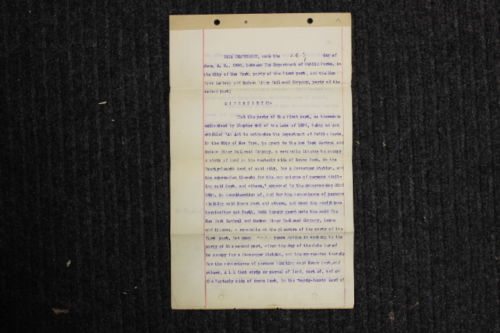 THIS INSTRUMENT, made the day of
June, A. D., 1890, between The Department of Public Parks, in
the City of New York, party of the first part, and the New
York Central and Hudson River Railroad Company, party of the
second part;
W I T N E S S E T H:-
That the party of the first part, as thereunto
authorized by Chapter of the Laws of 1890, being an act
entitled "An Act to authorize the Department of Public Parks,
in the City of New York, to grant to the New York Central and
Hudson River Railroad Company, a revocable license to occupy
a strip of land on the westerly side of Bronx Park, in the
Twenty-fourth Ward of said city, for a Passenger Station, and
the approaches thereto for the convenience of persons visiting
said Park, and others,"
in consideration of, and for the convenience of persons
visiting said Bronx Park and others, and upon the conditions
hereinafter set forth, doth hereby grant unto the said The
New York Central and Hudson River Railroad Company, leave
and license, revocable at the pleasure of the party of the
first part, but upon notice in writing to the
party of the second part, after the day of the date hereof
to occupy for a Passenger Station, and the approaches thereto
for the convenience of persons visiting said Bronx Park, and
others, A l l that strip or parcel of land, part of, and on
the Westerly side of Bronx Park, in the Twenty-fourth Ward of